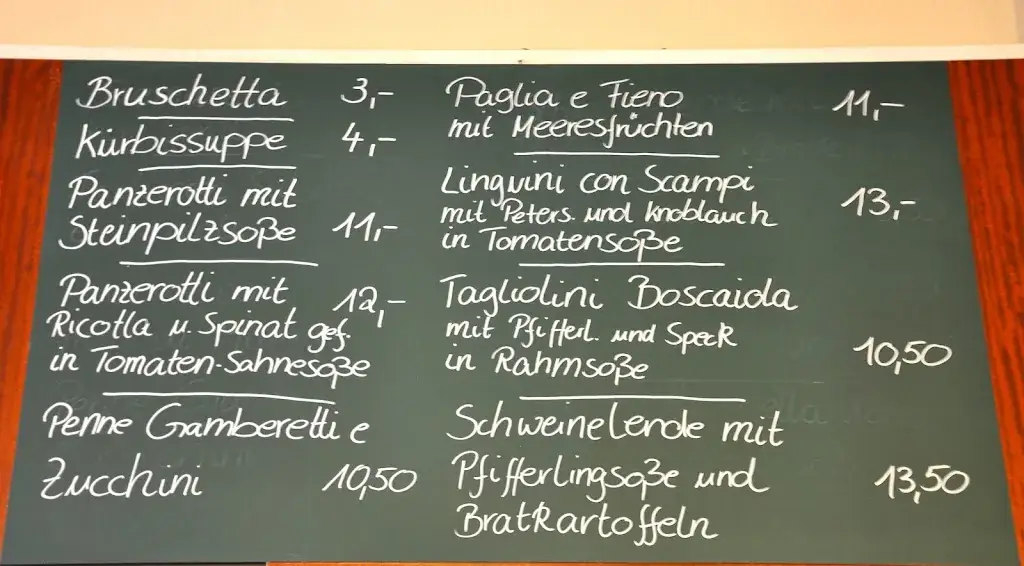 Bruschetta 3,-
Kürbissuppe 4,-
Panzerotti mit
Steinpilzsoße 11,-
Panzerotti mit 12,-
Ricotta u. Spinat gef.
in Tomaten-Sahnesoße
Penne Gamberetti e
Zucchini 10,50
Paglia e Fieno 11,-
mit Meeresfrüchten
Linguini con Scampi
mit Peters. und Knoblauch 13,-
in Tomatensoße
Tagliolini Boscaiola
mit Pfifferl. und Speck
in Rahmsoße 10,50
Schweinelende mit
Pfifferlingsoße und 13,50
Bratkartoffeln